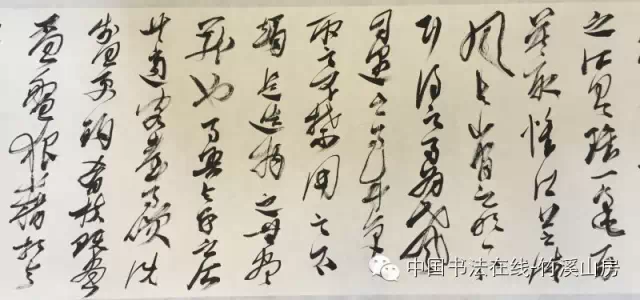 之所有雖一毫而
莫取惟江上之清
風與山間之明月
耳得之而為聲
目遇之而成色
取之無禁用之不
竭是造物者之無盡
藏也而吾與子之所
共適客喜而笑洗
盞更酌肴核既盡
杯盤狼藉相與
中国书法在线·竹溪山房